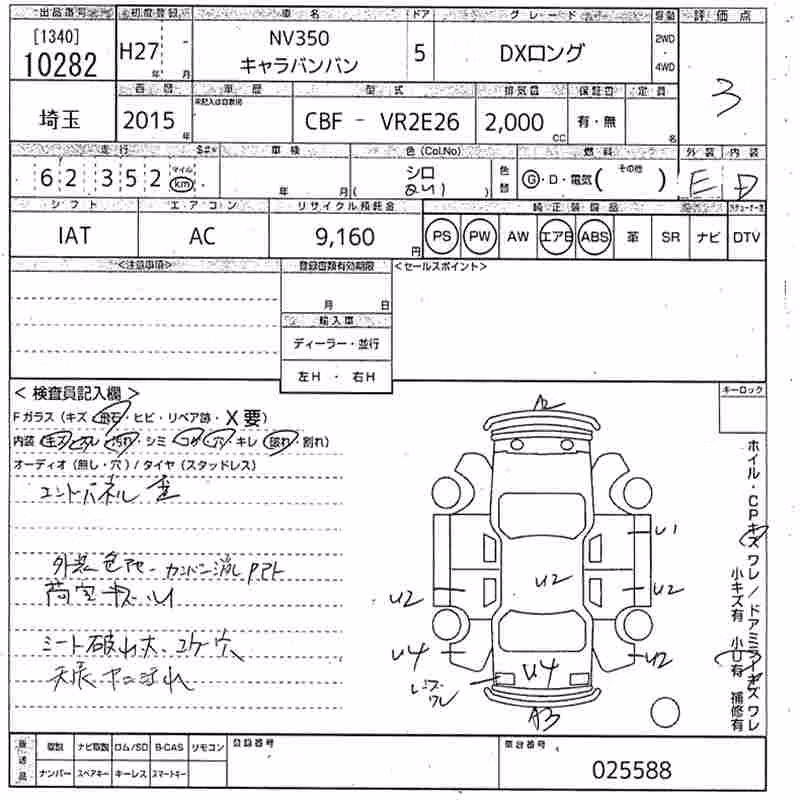 出品番号 初度登録 車名 ドア グレード 駆動 評価点
[1340] 10282 H27 年 月 NV350 キャラバンバン 5 DXロング 2WD ・ 4WD 3
西暦 車歴 型式 排気量 保証書 定員
埼玉 2015 年 未記入は自家用 CBF - VR2E26 2,000 CC 有・無 名
走行 車検 色(Col.No) 燃料 外装 内装
62,352 マイル km 年 月 シロ ( ) 色替 G・D・電気( その他 ) E D
シフト エアコン リサイクル預託金 純正装備品
IAT AC 9,160 円 PS PW AW エアB ABS 革 SR ナビ DTV
<注意事項> 登録書類有効期限 <セールスポイント>
月 日
輸入車
ディーラー・並行
左H ・ 右H
< 検査員記入欄 > キーロック
Fガラス (キズ・飛石・ヒビ・リペア跡・X要)
内装 (キズ・ ・汚れ・シミ・コゲ・穴・キレ・破れ・割れ)
オーディオ (無し・穴) / タイヤ (スタッドレス)
エンドパネル 歪
外装色アセ カンバン消しアト
荷室キズ・U
シート破れ大、コゲ穴
天張ヤニ汚れ
A2
U1
U2
U2
U2
U4
U2
U4
レンズワレ
A3
ホイル・CPキズワレ / ドアミラーキズワレ
小キズ有 小U有 補修有
発送品 取説 ナビ取説 ロム/SD B-CAS リモコン 登録番号 車台番号
ナンバー スペアキー キーレス スマートキー 025588